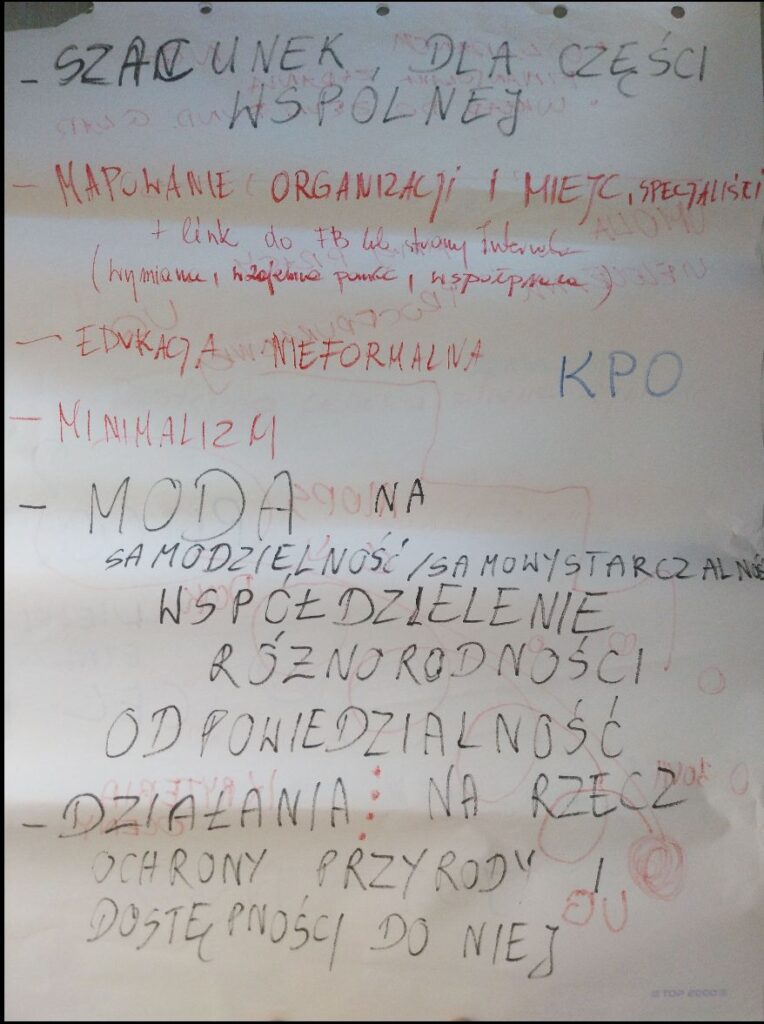 - SZACUNEK DLA CZĘŚCI
WSPÓLNEJ
- MAPOWANIE ORGANIZACJI I MIEJC, SPECJALIŚCI
+ link do FB lub strony
(wymiana, wzajemna pomoc, współpraca)
- EDUKACJA NIEFORMALNA
KPO
- MINIMALIZM
- MODA NA
SAMODZIELNOŚĆ/SAMOWYSTARCZALNOŚ
WSPÓŁDZIELENIE
RÓŻNORODNOŚCI
ODPOWIEDZIALNOŚĆ
- DZIAŁANIA NA RZECZ
OCHRONY PRZYRODY I
DOSTĘPNOŚCI DO NIEJ
UG
TOP 2000